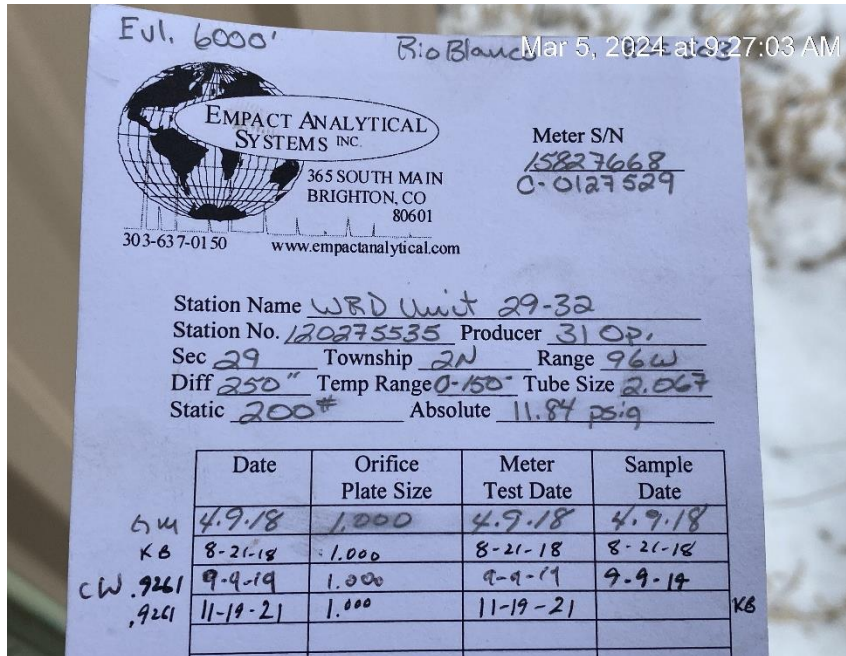 Evl. 6000'
Rio Blanco
Mar 5, 2024 at 9:27:03 AM
EMPACT ANALYTICAL
SYSTEMS INC.
365 SOUTH MAIN
BRIGHTON, CO
80601
303-637-0150
www.empactanalytical.com
Meter S/N
15827668
C-0127529
Station Name WRD Unit 29-32
Station No. 120275535 Producer 31 Op.
Sec 29 Township 2N Range 96W
Diff 250" Temp Range 0-150° Tube Size 2.067
Static 200# Absolute 11.84 psig
Date Orifice Plate Size Meter Test Date Sample Date
GM 4.9.18 1.000 4.9.18 4.9.18
KB 8-21-18 1.000 8-21-18 8-21-18
CW .9261 9-9-19 1.000 9-9-19 9-9-19
.9261 11-19-21 1.000 11-19-21 KB